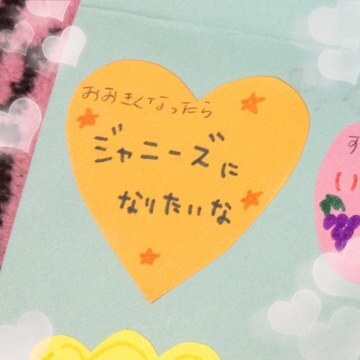 おおきくなったら
ジャニーズに
なりたいな
す